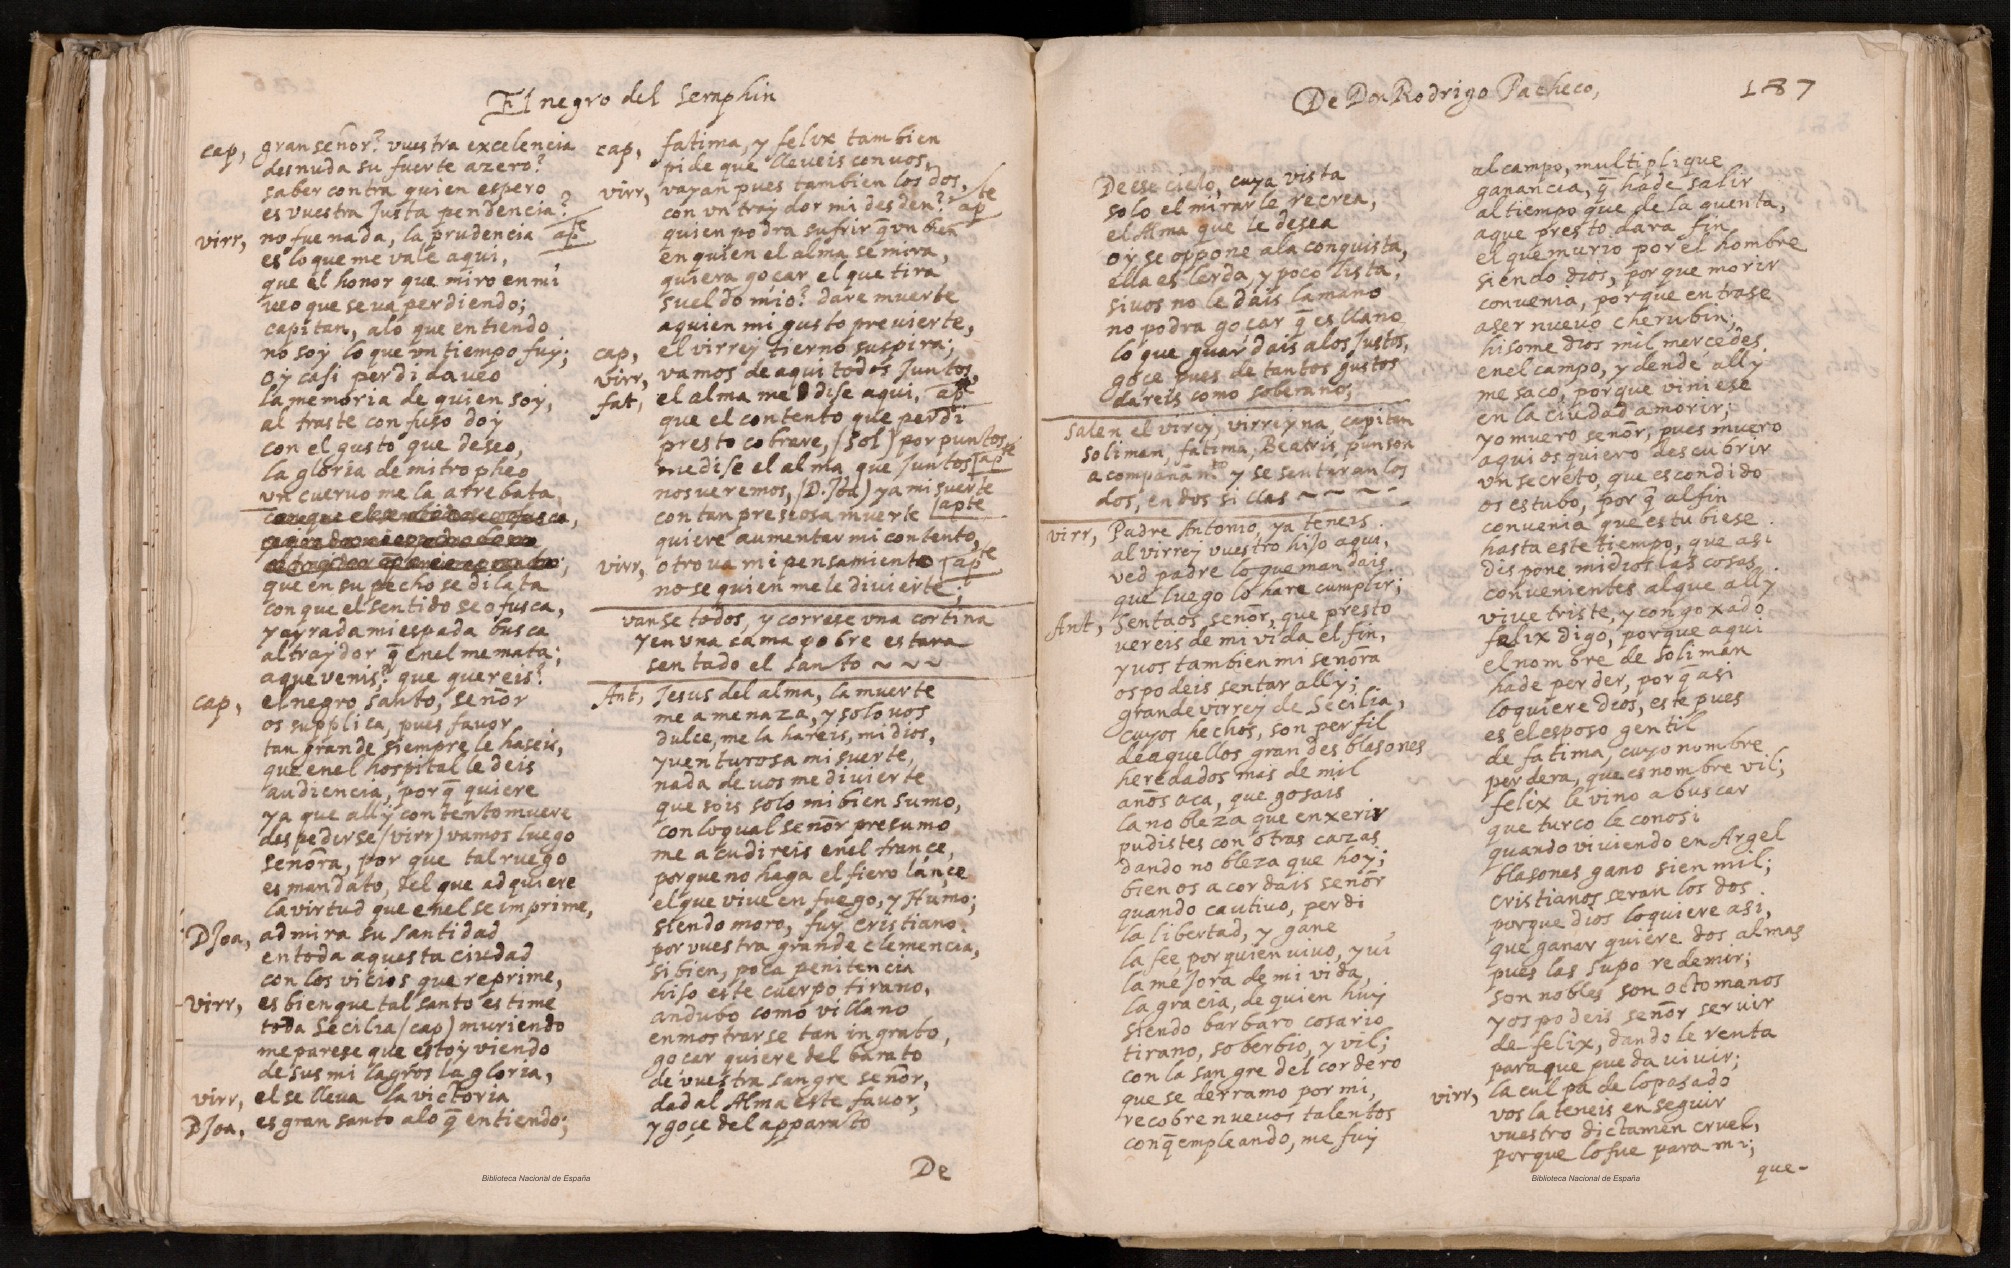 El negro del Seraphin
cap, gran señor? vuestra excelencia
desnuda su fuerte azero?
saber contra quien espero
es vuestra Justa pendencia?
virr, no fue nada, la prudencia apte
es lo que me vale aqui,
que el honor que miro en mi
veo que se va perdiendo;
capitan, alo que entiendo
no soy lo que vn tiempo fuy;
oy casi perdida veo
la memoria de quien soy,
al traste confuso doy
con el gusto que deseo,
la gloria de mi tropheo
vn cuervo me la arrebata
que en su pecho se dilata
con que el sentido se ofusca,
y ayrada mi espada busca
al traydor q̄ enel me mata;
aque venis? que quereis?
cap, el negro santo, señor
os supplica, pues favor
tan grande siempre le haseis,
que enel hospital le deis
audiencia, porq̄ quiere
ya que ally contento muere
despedirse (virr) vamos luego
señora, por que tal ruego
es mandato, del que adquiere
la virtud que enel se imprime,
DJoa, admira su santidad
en toda aquesta ciudad
con los vicios que reprime,
virr, es bien que tal santo estime
toda Secilia (cap) muriendo
me parese que estoy viendo
de sus milagros la gloria,
virr, el se lleva la victoria
DJoa, es gran santo alo q̄ entiendo;
cap, fatima, y felix tambien
pide que lleveis con vos,
virr, vayan pues tambien los dos,
con vn traydor mi desden? apte
quien podra sufrir q̄ vn bien
en quien el alma se mira,
quiera goçar el que tira
sueldo mio? dare muerte
aquien mi gusto previerte,
cap, el virrey tierno suspira;
virr, vamos de aqui todos Juntos,
fat, el alma me dise aqui, apte
que el contento que perdi
presto cobrare, (Sol) por puntos
me dise el alma que Juntos apte
nos veremos, (D. Joa) ya mi suerte
con tan presiosa muerte apte
quiere aumentar mi contento,
virr, otro va mi pensamiento apte
no se quien me le divierte;
vanse todos, y correse vna cortina
y en vna cama pobre estara
sentado el santo ~ ~ ~
Ant, Jesus del alma, la muerte
me amenaza, y solo vos
dulce, me la hareis, mi dios,
y venturosa mi suerte,
nada de vos me divierte
que sois solo mi bien sumo,
con lo qual señor presumo
me acudireis enel trançe,
porque no haga el fiero lançe
el que vive en fuego, y Humo;
siendo moro, fuy cristiano
por vuestra grande clemencia,
si bien, poca penitencia
hiso este cuerpo tirano,
andubo como villano
en mostrarse tan ingrato,
goçar quiere del barato
de vuestra sangre señor,
dad al Alma este favor,
y goçe del apparato
De
De Don Rodrigo Pacheco,
187
De ese cielo, cuya vista
solo el mirarle recrea,
el Alma que le desea
oy se oppone ala conquista,
ella es lerda, y poco lista,
si vos no le dais la mano
no podra goçar q̄ es llano
lo que guardais alos Justos,
goçe pues de tantos gustos
dareis como soberano;
salen el virey, virreyna, capitan
soliman, fatima, Beatris, punson
acompañan.to y se sentaran los
dos, en dos sillas ~ ~ ~ ~
virr, Padre Antonio, ya teneis
al virrey vuestro hijo aqui,
ved padre lo que mandais
que luego lo hare cumplir;
Ant, Sentaos señor, que presto
vereis de mi vida el fin,
y vos tambien mi señora
os podeis sentar ally;
grande virrey de Secilia,
cuyos hechos, son perfil
de aquellos grandes blasones
heredados mas de mil
años aca, que gosais
la nobleza que enxerir
pudistes con otras cazas
dando nobleza que hoy;
bien os acordais señor
quando cautivo, perdi
la libertad, y gane
la fee por quien vivo, y vi
la meJora de mi vida,
la gracia, de quien huy
siendo barbaro cosario
tirano, soberbio, y vil;
con la sangre del cordero
que se derramo por mi,
recobre nuevos talentos
conq̄ empleando, me fuy
al campo, multiplique
ganancia, q̄ ha de salir
al tiempo que de la quenta,
aque presto dara fin
el que murio por el hombre
siendo dios, por que morir
convenia, porque entrase
aser nuevo cherubin;
hisome dios mil mercedes
enel campo, y dende ally
me saco, porque viniese
en la ciudad a morir;
yo muero señor, pues muero
aqui os quiero descubrir
vn secreto, que escondido
os estubo, por q̄ al fin
convenia que estubiese
hasta este tiempo, que asi
dispone mi dios las cosas
convenientes al que ally
vive triste, y congoxado
felix digo, porque aqui
el nombre de soliman
ha de perder, porq̄ asi
lo quiere dios, este pues
es el esposo gentil
de fatima, cuyo nombre
perdera, que es nombre vil;
felix le vino a buscar
que turco le conosi
quando viviendo en Argel
blasones gano sien mil;
cristianos seran los dos
porque dios lo quiere asi,
que ganar quiere dos almas
pues las supo redemir;
son nobles son octomanos
y os podeis señor servir
de felix, dandole renta
para que pueda vivir;
virr, la culpa de lo pasado
vos la teneis en seguir
vuestro dictamen cruel,
porque lo fue para mi;
que-
Biblioteca Nacional de España
Biblioteca Nacional de España